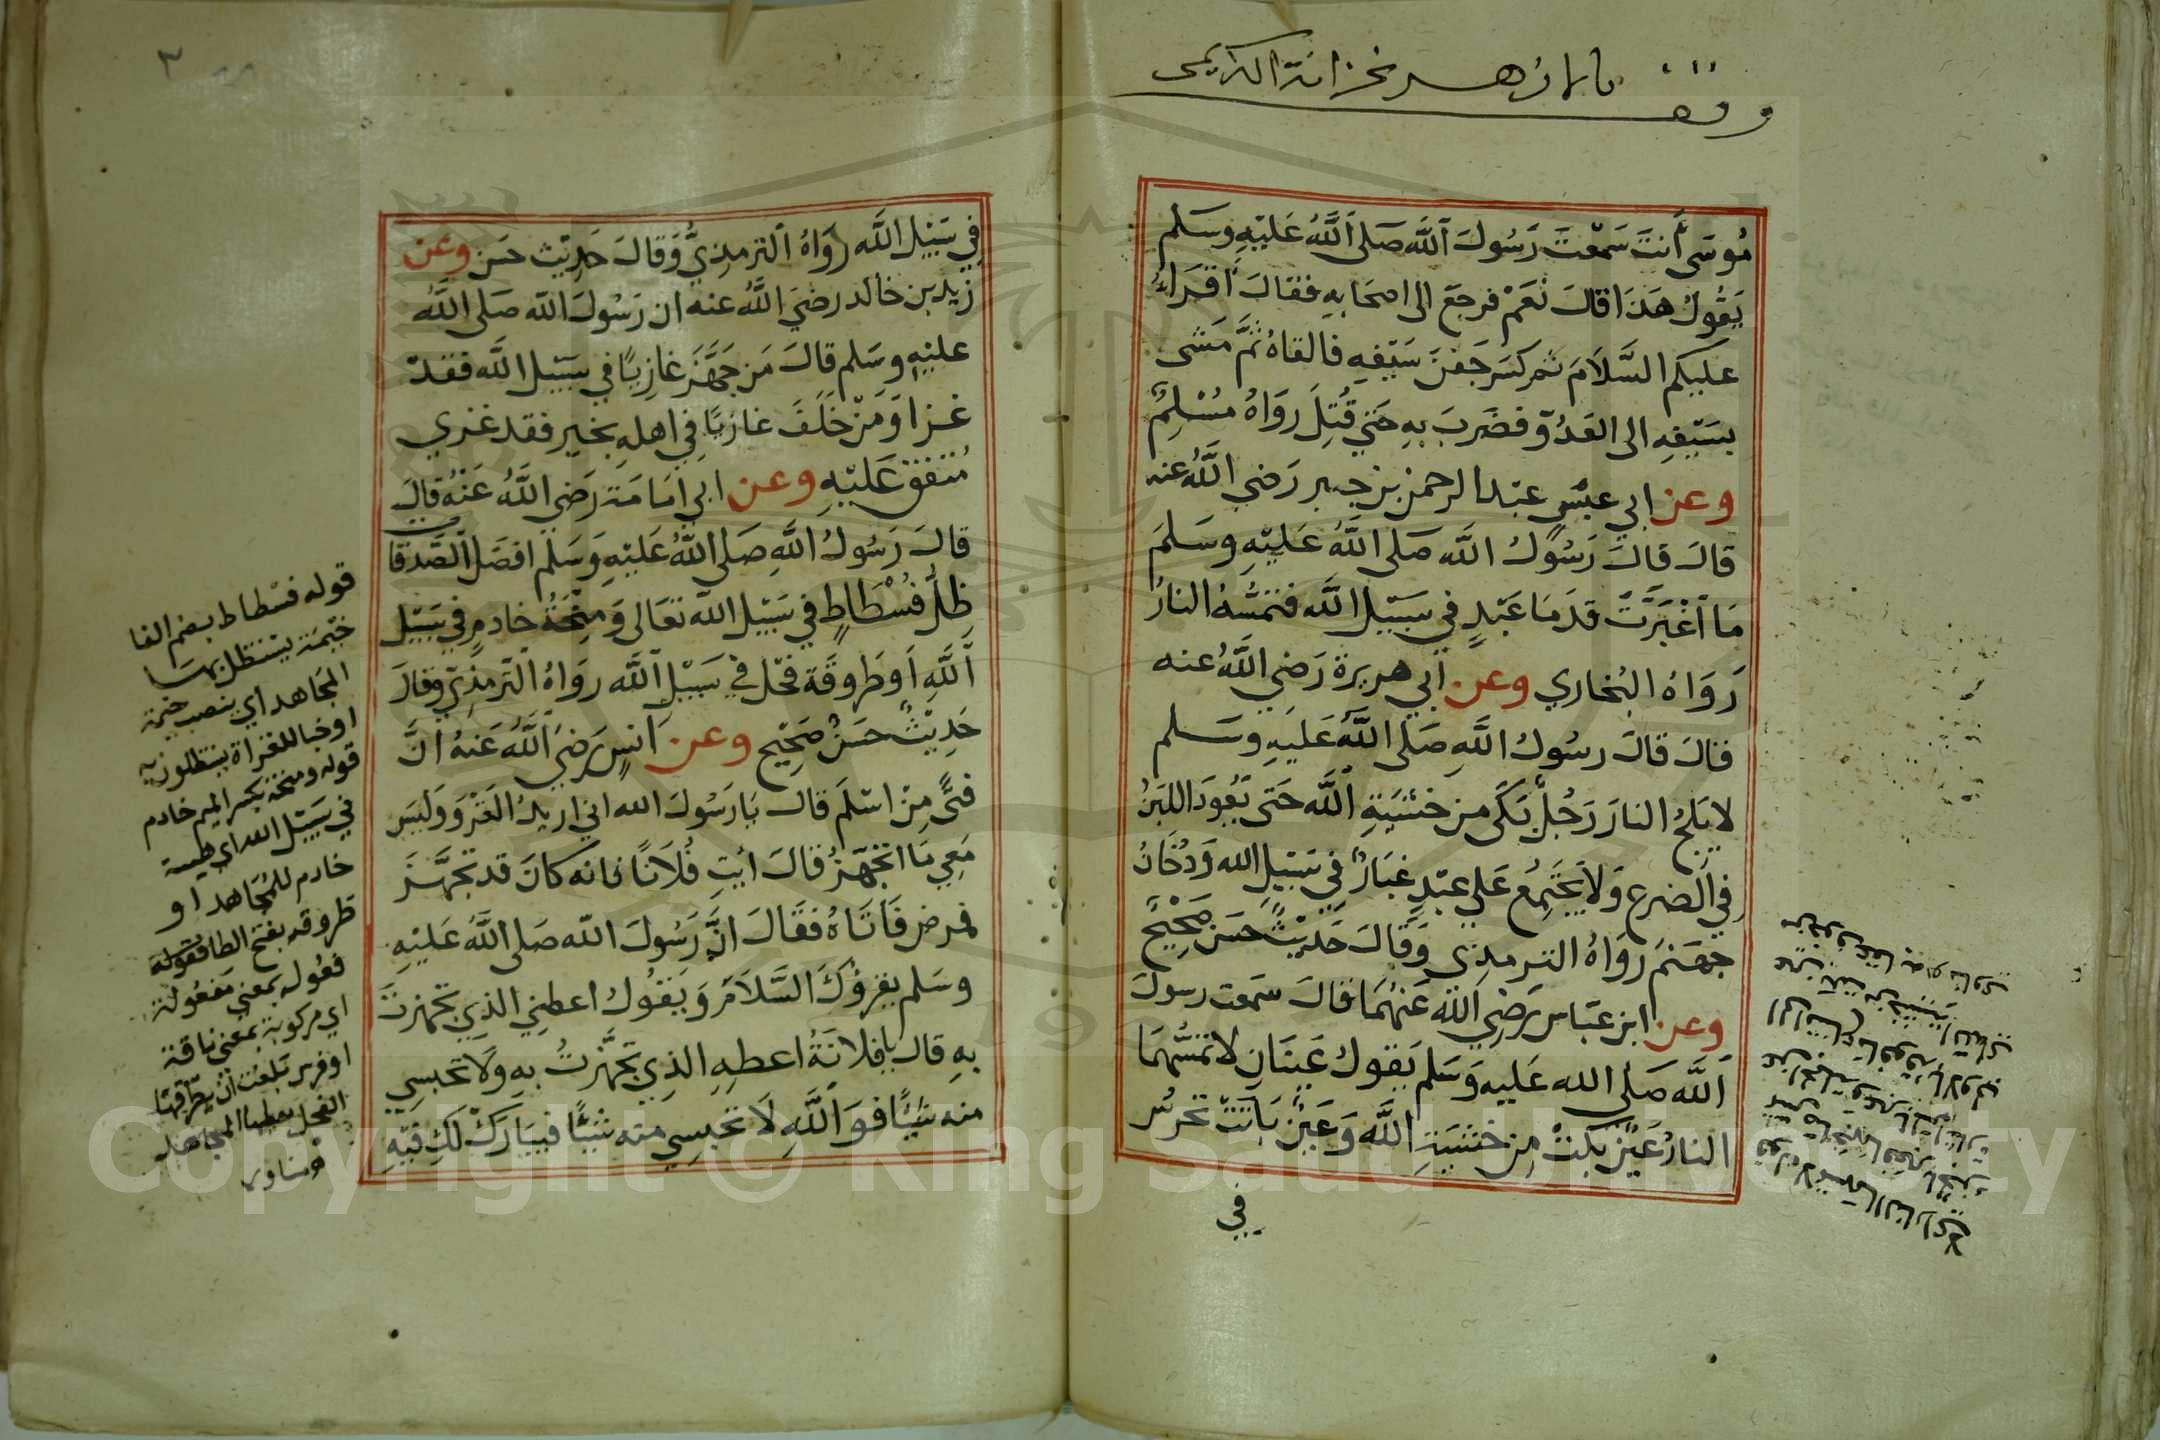 وقف بالازهر بخزانة الكريمى
مُوسَى أَنتَ سَمِعْتَ رَسُولَ اللَّه صَلى اَللَّهُ عَلَيْهِ وسَلم
يَقُولُ هَذَا قالَ نَعَمْ فرجعَ الى اصحَابِهِ فقَالَ أقرَاءُ
عليكم السَّلاَمَ ثم كسَرَ جَفنَ سَيْفِهِ فالقاهُ ثمَّ مَشى
بسَيْفِهِ الى العَدُوّ فضَرَبَ بهِ حَتي قُتِلَ رَوَاهُ مُسْلِمٌ
وعن ابي عبْسٍ عبْد الرحمن بن جبر رَضي اللَّهُ عنه
قالَ قالَ رَسُولُ اللَّه صَلى اللَّهُ عَليْهِ وسَلمَ
مَا أغْبَرَّتْ قدَمَا عَبْدٍ في سَبيْلِ اللَّه فتمَسُّهُ النارُ
رَوَاهُ البُخاري وعن أبي هريرة رَضِي اللَّهُ عنه
قالَ قالَ رسُولُ اللَّهِ صَلى اللَّهُ عَليهِ وسَلم
لا يَلجُ النارَ رَجُلٌ بَكَى من خشْيَةِ اَللَّه حَتى يَعُودَ اللبَنُ
فِي الضرع وَلاَ يَجْتَمِعُ عَلي عبْدٍ غبَارٌ فِي سَبيْلِ الله وَدُخَانُ
جهَنمَ رَوَاهُ الترمذِي وَقَالَ حَديْثٌ حسَن صَحِيْحٌ
وعن ابن عبّاس رَضِي اللَّهُ عَنْهُمَا قالَ سَمعت رسولَ
اَللَّه صَلى الله عَليهِ وَسَلم يَقولُ عَيْنَانِ لا تمَسُّهُمَا
النارُ عَيْنٌ بَكَتْ مِن خشيَةِ اللَّه وَعَيْنٌ بَاتَتْ تحْرُسُ
في
٣
فِي سَبيْلِ اللَّه رَوَاهُ اَلترمذِيُّ وَقالَ حَدِيْث حسَن وعن
زيد بن خالد رضيَ اللَّهُ عنه ان رَسُولَ اللَّه صَلى اللَّهُ
عليْهِ وسَلم قالَ مَن جَهَّزَ غَازِيًا في سَبيْلِ اللَّه فقدْ
غزا وَمَنْ خَلَفَ غازيًا فِي اهلهِ بخيرٍ فقد غزي
مُتفق عَليْهِ وعن ابي امَامَة رَضِي اللَّهُ عَنْهُ قالَ
قالَ رَسُولُ اللَّهِ صَلى اللَّهُ عَليْهِ وَسَلم افضَلُ الصَّدقات
ظِلُّ فُسْطَاطٍ في سَبيْلِ اللَّه تعَالى وَمِنْحَةُ خادمٍ في سَبيْل
اَللَّهِ اَوطَرُوقَة فحْل فيْ سَبيْلِ اَللَّه رَوَاهُ التّرمذِيّ وقالَ
حَدِيْثٌ حسَنٌ صَحِيْح وعن اَنسٍ رَضيَ اَللَّهُ عَنهُ انَّ
فتًى مِنْ اسْلَمَ قالَ يَارَسُولَ الله اني اريدُ الغَزْوَ وَلَيسَ
مَعِي مَا اتجَهَّزُ قالَ ائتِ فُلاَنًا فانه كانَ قد تجَهَّزَ
فمرض فَاَتَاهُ فقَالَ انَّ رَسُولَ اللَّه صَلى اللَّهُ عَليْهِ
وسَلم يقرؤُكَ السَّلاَمَ وَيَقُولُ اعطِني الذِي تجهزتَ
بهِ قال يا فلانَةُ اعطِهِ الذِي تجَهَّزتُ بهِ وَلاَ تحبسِي
منه شيْئًا فوَاَللَّهِ لاَ تحبسِي منه شيْئًا فيبَارَكْ لَكِ فيْهِ
قوله فسْطاط بضم الفا
خيْمَة يستظل بهَا
المجَاهد اي ينصب خيمَة
اوخبا للغزاة يستظلون به
قوله ومنحة بكسر الميم خادم
في سَبيْل الله اي هبة
خادم للمجَاهد او
طروقه بفتح الطا فعُولة
فعُوله بمعني مَفعُولة
اي مركوبة بمعني ناقة
اوفرس بلغت ان يطرقها
الفحل يعطيها المجاهد
مناوى
Copyright © King Saud University